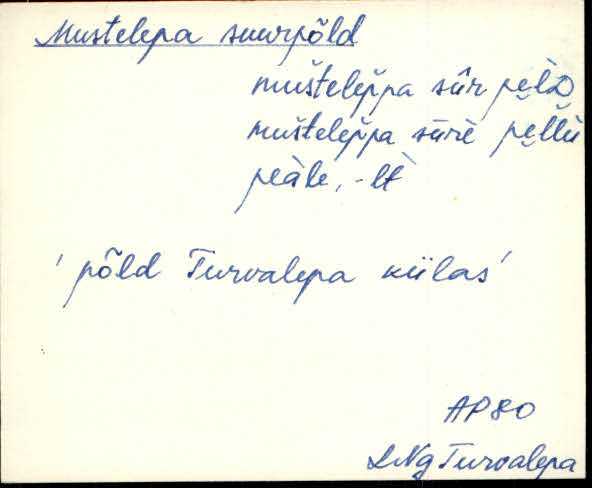 Mustelepa suurpõld
muštelep̆pa sûr pe̮l̀D
muštelep̆pa sūrè pe̮l̆lù
peàle, -lt̀
'põld Turvalepa külas'
AP80
LNg Turvalepa